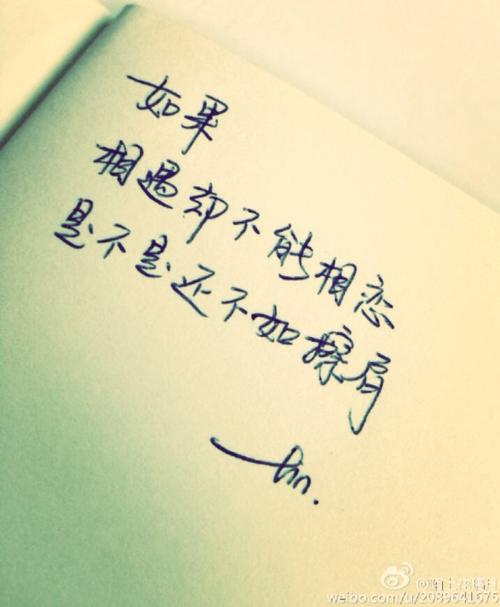 如果
相遇却不能相恋
是不是还不如擦肩
weibo.com/u/2089641675